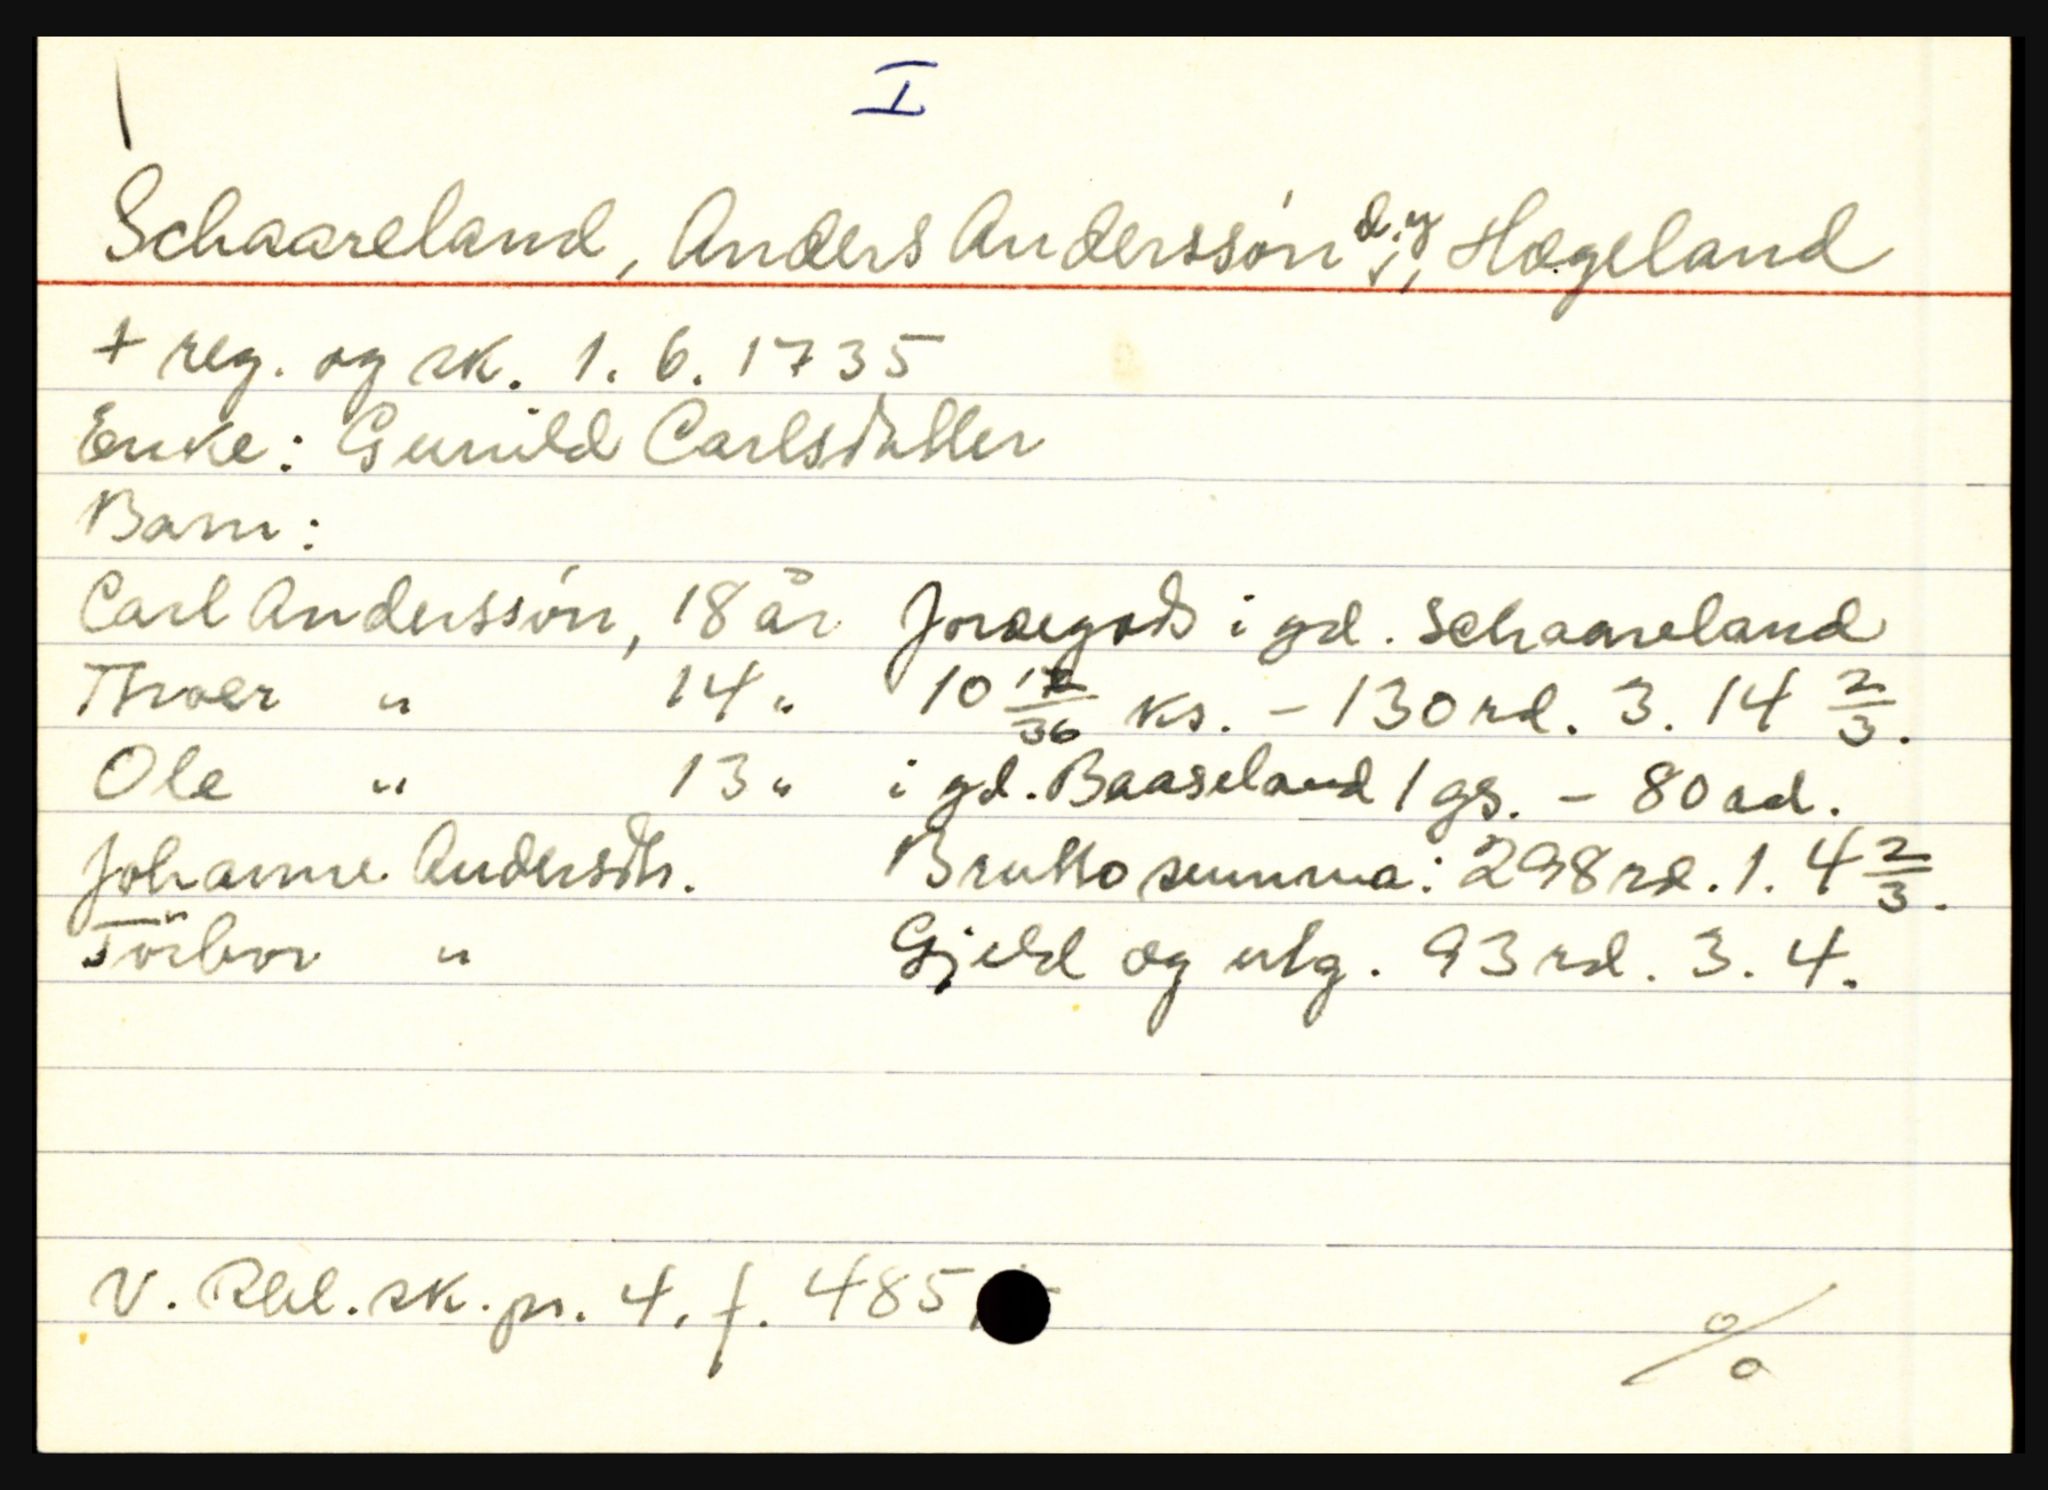 I
Schaareland, Anders Anderssón d.y., Hægeland
+ reg. og sk. 1. 6. 1735
Enke: Gunild Carlsdatter
Barn:
Carl Anderssón, 18 år Jordegods i gd. Schaareland
Troer " 14 " 10 12/36 ks. - 130 rd. 3. 14 2/3.
Ole " 13 " i gd. Baaseland 1 gs. - 80 rd.
Johanne Andersdtr. Brutto summa: 298 rd. 1. 4 2/3.
Törbor " Gjeld og utg. 93 rd. 3. 4.
V. Rbl. sk. pr. 4. f. 485
o/o